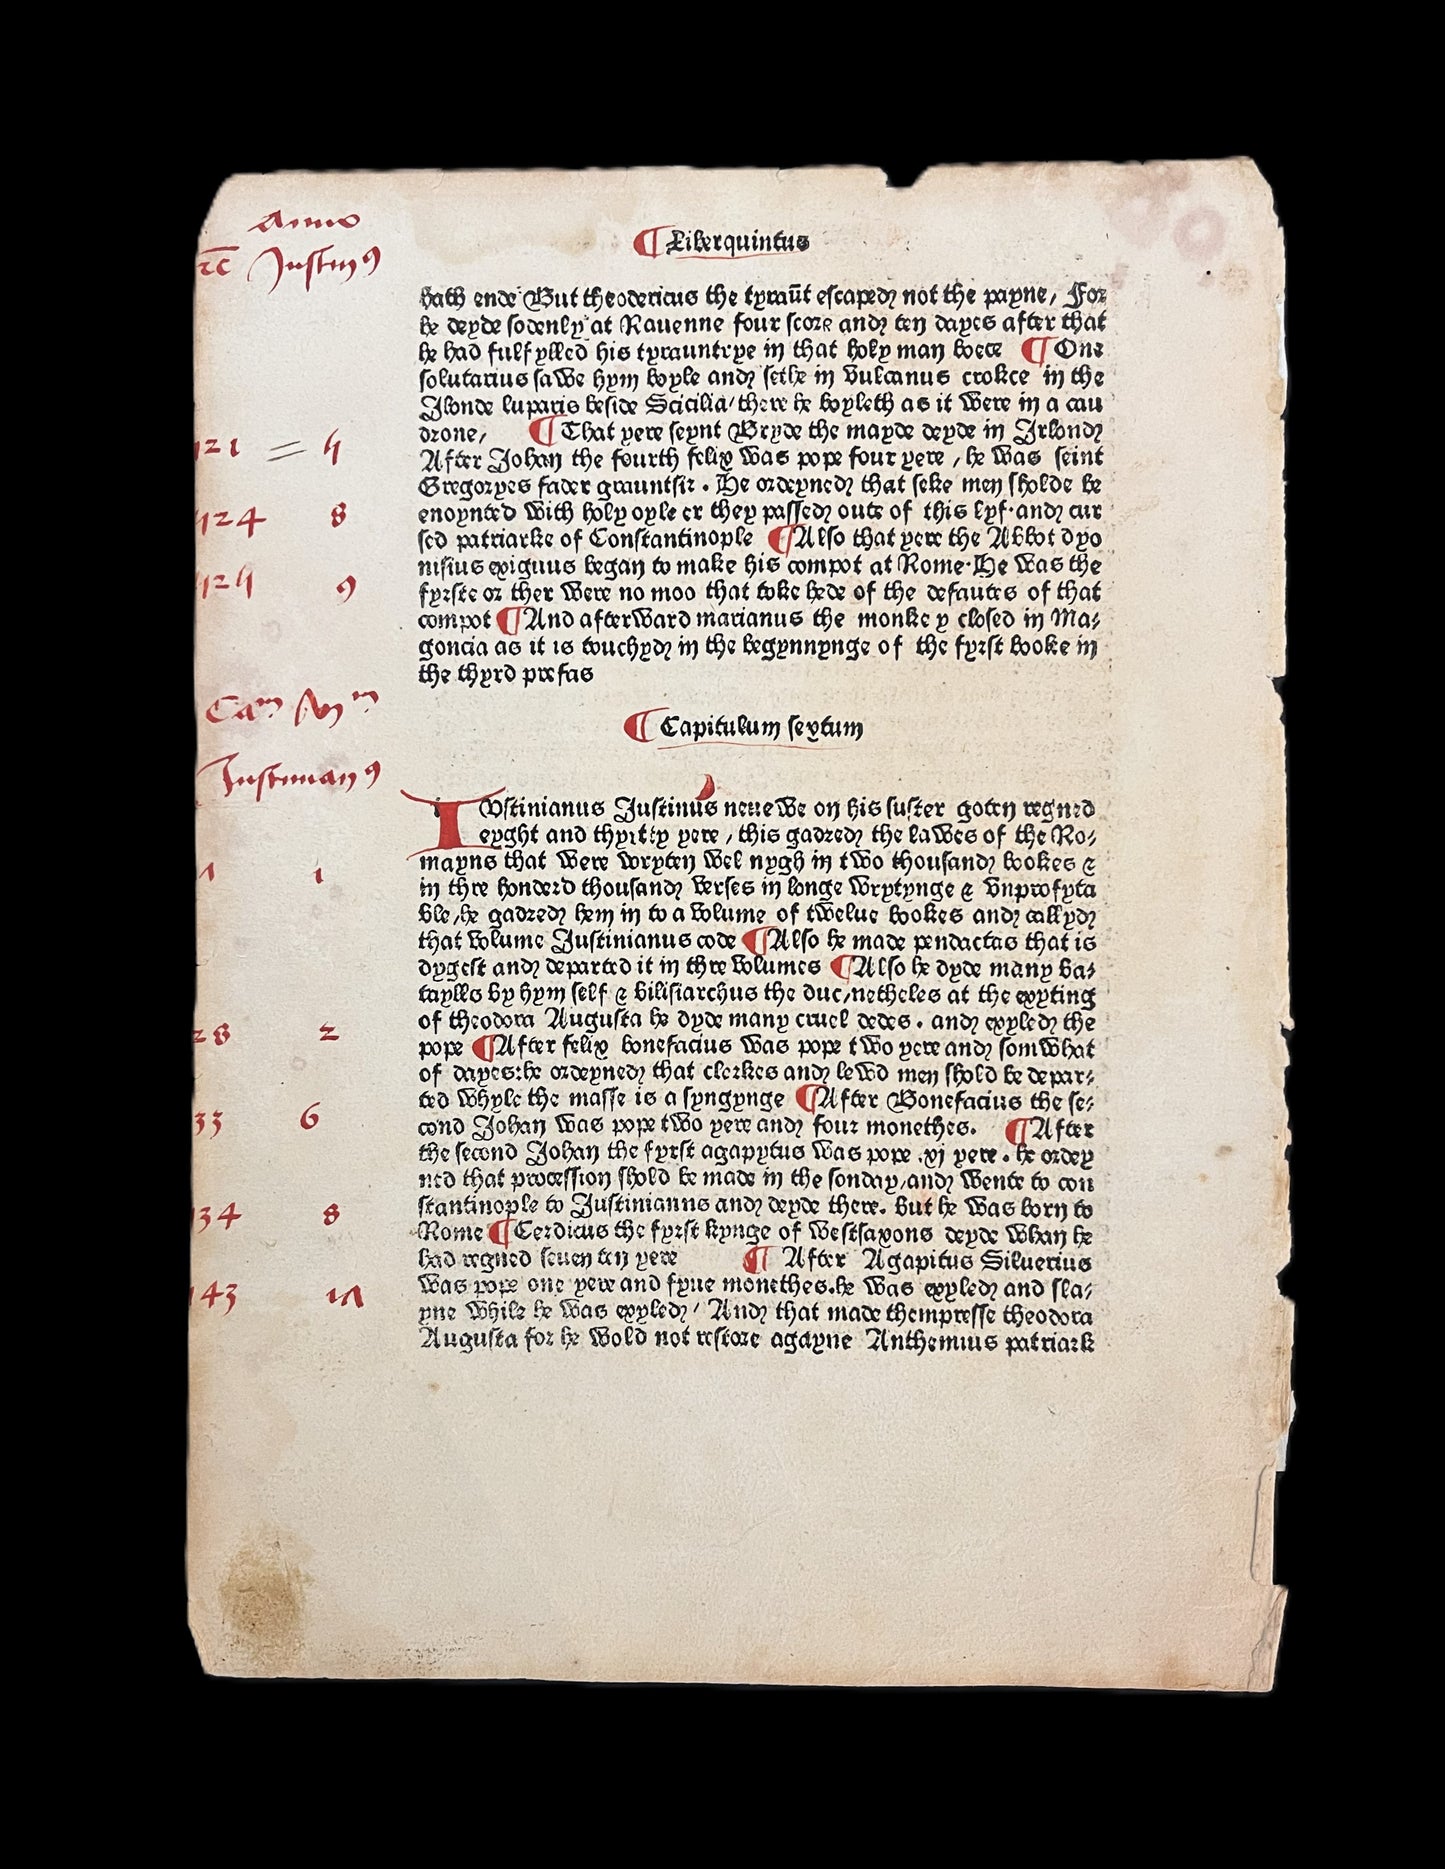 Anno
Justin⁹
¶ Liber quintus
hath ende But theodericus the tyraūt escaped not the payne, For
he deyde sodenly at Rauenne four score and ten dayes after that
he had fulfylled his tyrauntrye in that holy man boece ¶ One
solutarius sawe hym boyle and sethe in vulcanus crokce in the
Ilonde luparis beside Scicilia/ there he boyleth as it were in a cau
drone, ¶ That yere seynt Bryde the mayde deyde in Irlond
After Johan the fourth felix was pope four yere, he was seint
Gregoryes fader grauntsir. He ordeyned that seke men sholde be
enoynted with holy oyle er they passed oute of this lyf. and cur
sed patriarke of Constantinople ¶ Also that yere the Abbot dyo
nisius exiguus began to make his compot at Rome. He was the
fyrste or ther were no moo that toke hede of the defautes of that
compot ¶ And afterward marianus the monke y closed in Ma⸗
goncia as it is touchyd in the begynnynge of the fyrst booke in
the thyrd prefas
¶ Capitulum sextum
Justinian⁹
IVstinianus Justinus neuewe on his suster goten regned
eyght and thyrtty yere, this gadred the lawes of the Ro⸗
mayns that were wryten wel nygh in two thousand bookes &
in thre honderd thousand verses in longe wrytynge & vnprofyta
ble, he gadred hem in to a volume of twelue bookes and callyd
that volume Justinianus code ¶ Also he made pendactas that is
dygest and departed it in thre volumes ¶ Also he dyde many ba⸗
taylls by hym self & bilisiarchus the duc, netheles at the exyting
of theodora Augusta he dyde many cruel dedes. and exyled the
pope ¶ After felix bonefacius was pope two yere and somwhat
of dayes: he ordeyned that clerkes and lewd men shold be depar⸗
ted whyle the masse is a syngynge ¶ After Bonefacius the se⸗
cond Johan was pope two yere and four monethes. ¶ After
the second Johan the fyrst agapytus was pope .xj yere. he ordey
ned that procession shold be made in the sonday, and wente to con
stantinople to Justinianns and deyde there. but he was born to
Rome ¶ Cerdicus the fyrst kynge of westsaxons deyde whan he
had regned seuen ten yere ¶ After Agapitus Siluerius
was pope one yere and fyue monethes. he was exyled and sla⸗
yne while he was exyled/ And that made thempresse theodora
Augusta for he wold not restore agayne Anthemius patriark
121 = 4
124 8
124 9
1 1
28 2
33 6
34 8
43 1Λ